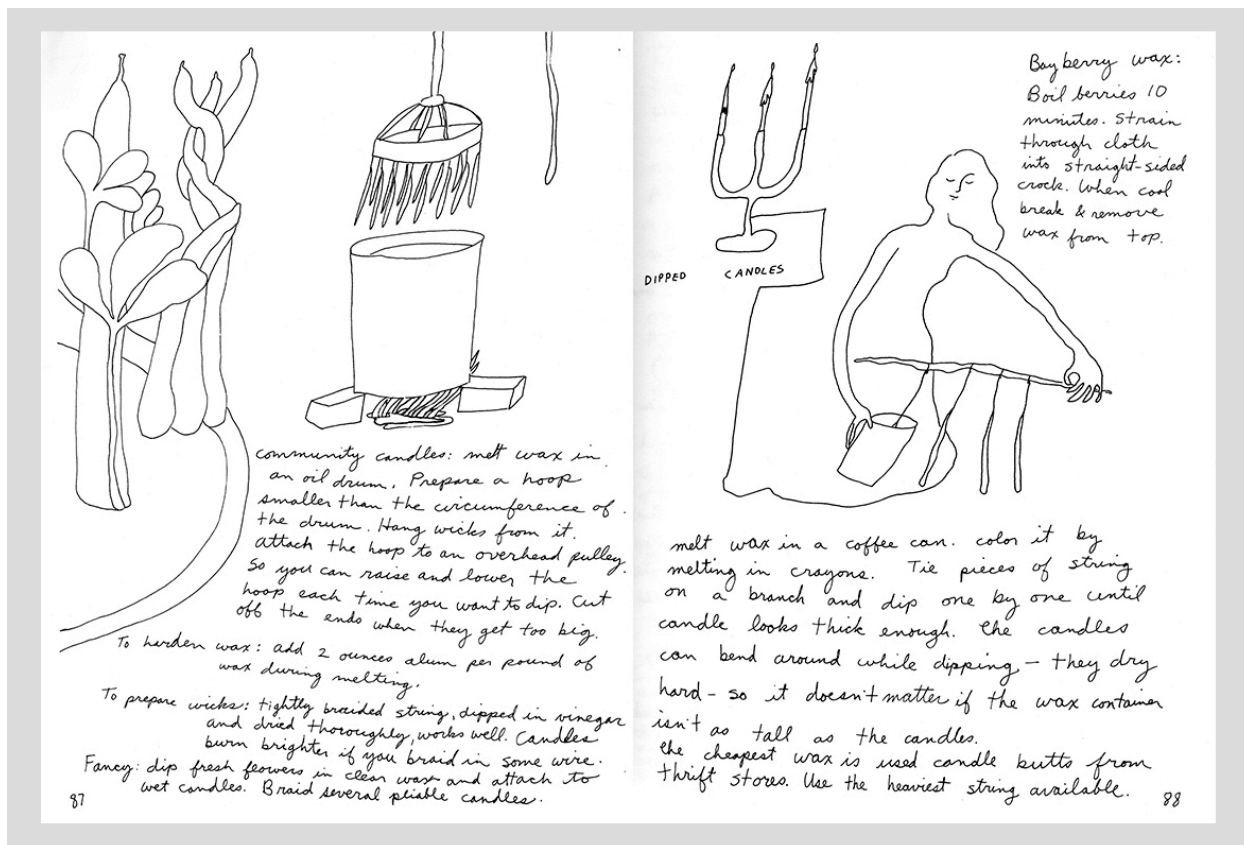 community candles: melt wax in
an oil drum. Prepare a hoop
smaller than the circumference of
the drum. Hang wicks from it.
attach the hoop to an overhead pulley.
So you can raise and lower the
hoop each time you want to dip. Cut
off the ends when they get too big.
To harden wax: add 2 ounces alum per pound of
wax during melting.
To prepare wicks: tightly braided string, dipped in vinegar
and dried thoroughly, works well. Candles
burn brighter if you braid in some wire.
Fancy: dip fresh flowers in clear wax and attach to
wet candles. Braid several pliable candles.
87
DIPPED CANDLES
Bayberry wax:
Boil berries 10
minutes. Strain
through cloth
into straight-sided
crock. When cool
break & remove
wax from top.
melt wax in a coffee can. color it by
melting in crayons. Tie pieces of string
on a branch and dip one by one until
candle looks thick enough. The candles
can bend around while dipping - they dry
hard - so it doesn't matter if the wax container
isn't as tall as the candles.
The cheapest wax is used candle butts from
thrift stores. Use the heaviest string available.
88